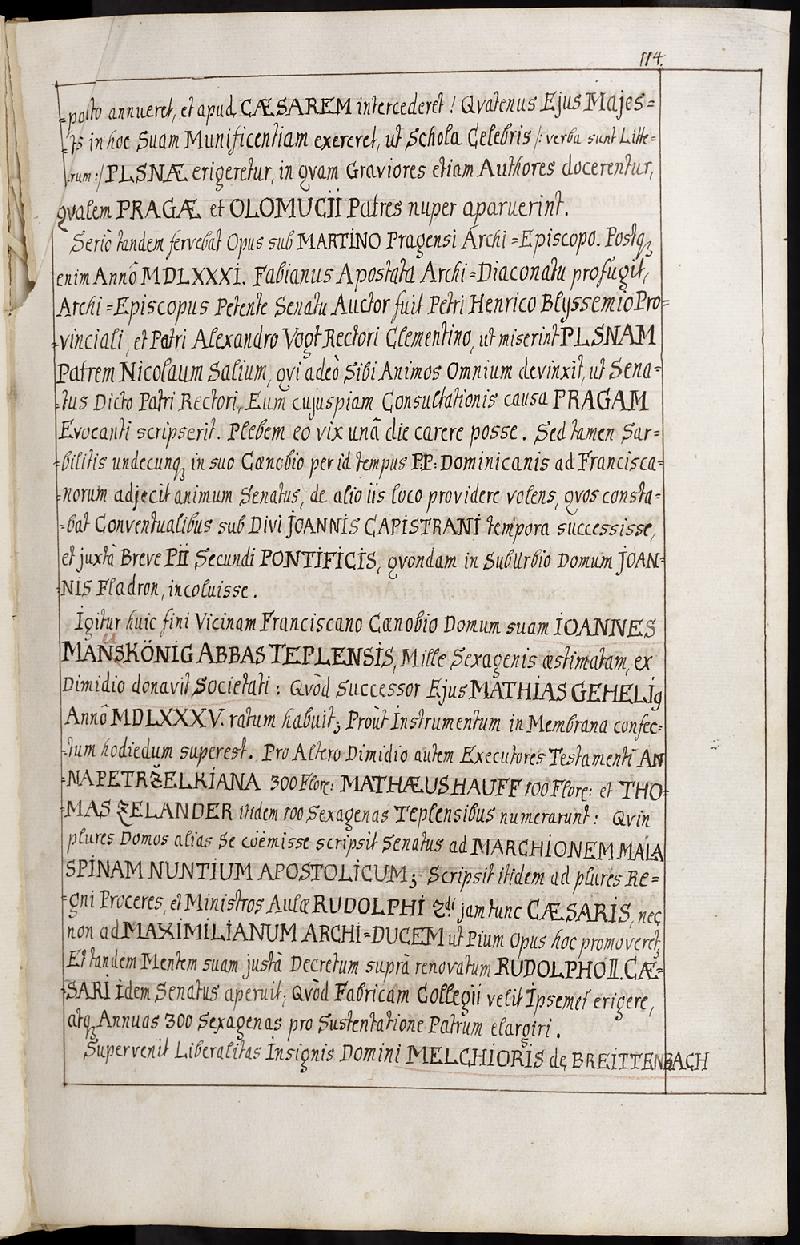 114.
-posito annueret, et apud CÆSAREM intercederet! Qvatenus Ejus Majes=
-tas in hoc Suam Munificentiam exereret, ut Schola Celebris /: verba sunt Litte=
-rarum :/ PLSNÆ erigeretur, in qvam Graviores etiam Authores docerentur,
qvalem PRAGÆ et OLOMUCII Patres nuper aparuerint.
Serio tandem fervebat Opus sub MARTINO Pragensi Archi=Episcopo. Postq,
enim Annô MDLXXXI. Fabianus Apostata Archi=Diaconatu profugit,
Archi=Episcopus Petente Senatu Auctor fuit Petri Henrico Blyssemio Pro=
-vinciali, et Patri Alexandro Vogt Rectori Clementino, ut miserint PLSNAM
Patrem Nicolaum Salium, qvi adeò Sibi Animos Omnium devinxit, ut Sena=
-tus Dicto Patri Rectori, Eum cujuspiam Consultationis causa PRAGAM
Evocanti scripserit. Plebem eo vix unâ die carere posse. Sed tamen Sar=
-bilitis undecunq, in suo Cænobio per id tempus PP: Dominicanis ad Francisca=
-norum adjecit animum Senatus, de alio iis loco providere volens, qvos consta=
-bat Conventualibus sub Divi JOANNIS CAPISTRANI tempora successisse,
et juxtà Breve PII Secundi PONTIFICIS, qvondam in SubUrbio Domum JOAN=
-NIS Fladron, incoluisse.
Igitur huic fini Vicinam Franciscano Cænobio Domum suam IOANNES
u
MANSKÖNIG ABBAS TEPLENSIS, Mille Sexagenis æstimatam, ex
Dimidio donavit Societati: Qvòd Successor Ejus MATHIAS GEHELIg
Annô MDLXXXV. ratum habuit; Proùt Instrumentum in Membrana confec=
-tum hodiedum superest. Pro Altero Dimidio autem Executores Testamenti AN
-NA PETRZELKIANA 300 Flor: MATHÆUS HAUFF 100 Flor: et THO=
-MAS ZELANDER itidem 100 Sexagenas Teplensibus numerarunt: Qvin
plures Domos alias Se coëmisse scripsit Senatus ad MARCHIONEM MALA
SPINAM NUNTIUM APOSTOLICUM; Scripsit itidem ad plures Re=
-gni Proceres, et Ministros Aulæ RUDOLPHI 2di jam tunc CÆSARIS, nec
non ad MAXIMILIANUM ARCHI=DUCEM ut Pium Opus hoc promoveret,
Et tandem Mentem suam justâ Decretum suprà renovatum RUDOLPHO II. CÆ=
-SARI idem Senatus aperuit; Qvòd Fabricam Collegii velit Ipsemet erigere,
atq, Annuas 300 Sexagenas pro Sustentatione Patrum elargiri.
Supervenit Liberalitas Insignis Domini MELCHIORIS de BREITTENBACH